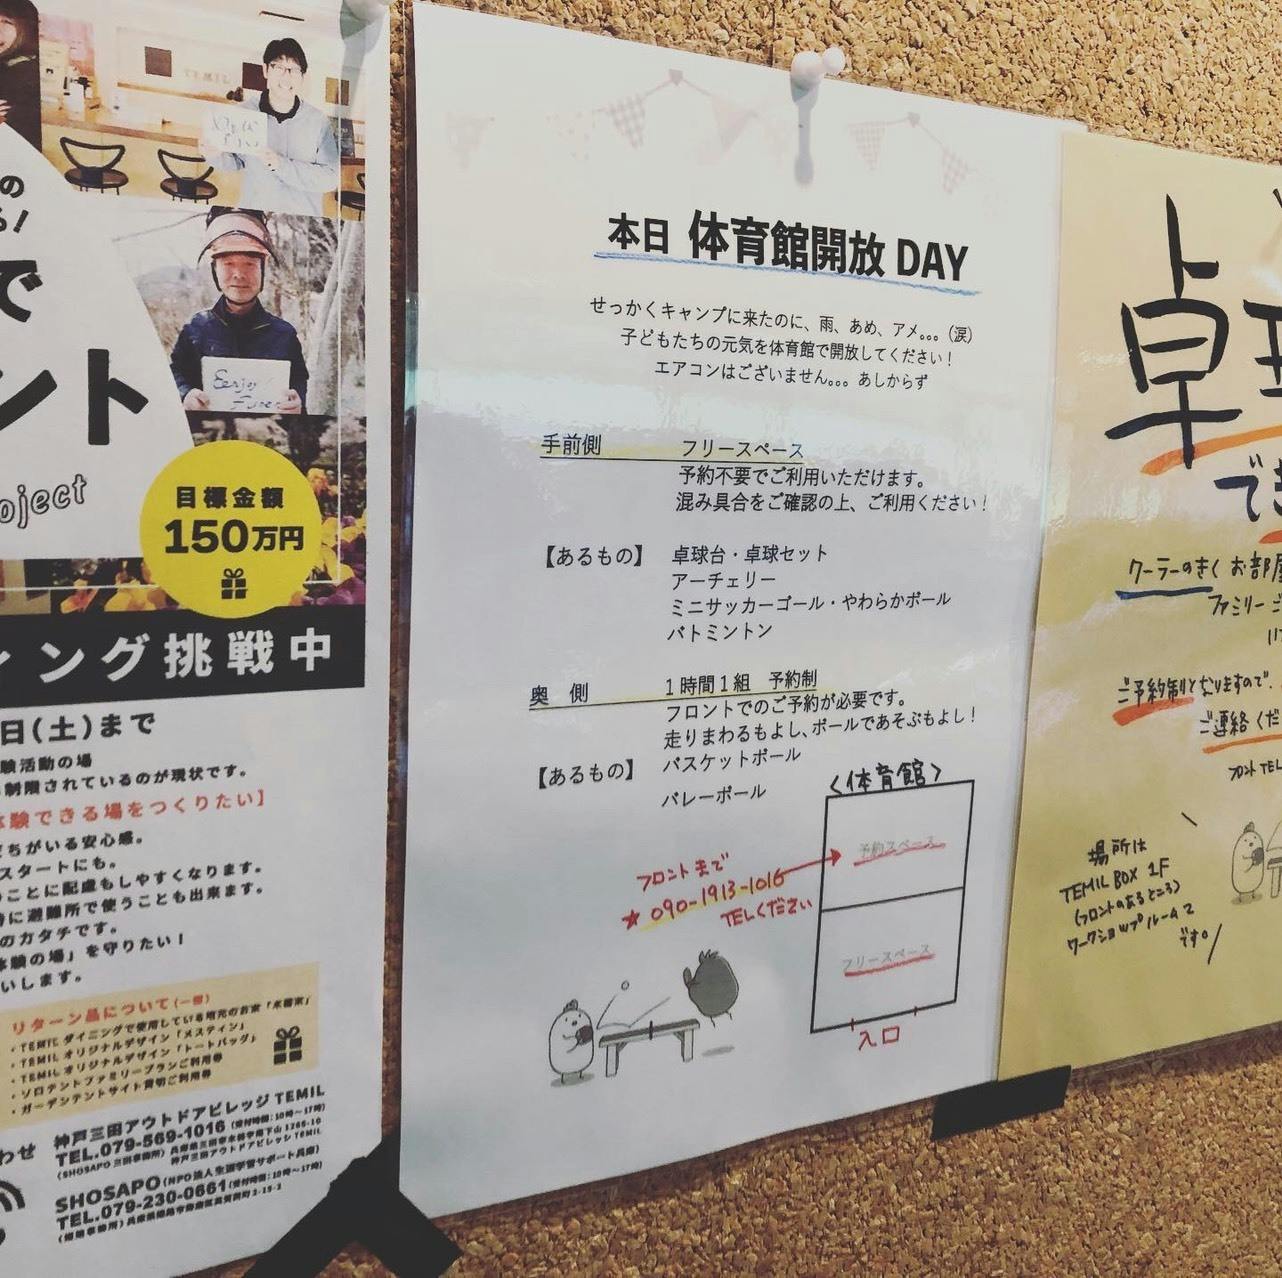 TEMIL
Enjoy!
で
ント
oject
目標金額
150万円
ィング挑戦中
日(土)まで
験活動の場
制限されているのが現状です。
体験できる場をつくりたい】
ちがいる安心感。
スタートにも。
ことに配慮もしやすくなります。
時に避難所で使うことも出来ます。
のカタチです。
体験の場」を守りたい！
いします。
リターン品について(一部)
・TEMIL オリジナルデザイン「メスティン」
・TEMIL オリジナルデザイン「トートバッグ」
・ソロテントファミリープランご利用券
・ガーデンテントサイト貸切ご利用券
わせ
神戸三田アウトドアビレッジ TEMIL
TEL.079-569-1016 (受付時間：10時〜17時)
SHOSAPO (NPO法人生涯学習サポート兵庫)
TEL.079-230-0661 (受付時間：10時〜17時)
本日 体育館開放 DAY
せっかくキャンプに来たのに、雨、あめ、アメ。。。(涙)
子どもたちの元気を体育館で開放してください！
エアコンはございません。。。あしからず
手前側 フリースペース
予約不要でご利用いただけます。
混み具合をご確認の上、ご利用ください！
【あるもの】 卓球台・卓球セット
アーチェリー
ミニサッカーゴール・やわらかボール
バトミントン
奥 側 1時間1組 予約制
フロントでのご予約が必要です。
走りまわるもよし、ボールであそぶもよし！
【あるもの】 バスケットボール
バレーボール
<体育館>
予約スペース
フロントまで
★090-1913-1016
TELください
フリースペース
入口
卓球
でき
クーラーのきく お部屋
ファミリー
ご予約制となりますので、
ご連絡くだ
フロント TEL
場所は
TEMIL BOX 1F
(フロントのあるところ)
ワークショップルーム2
です。